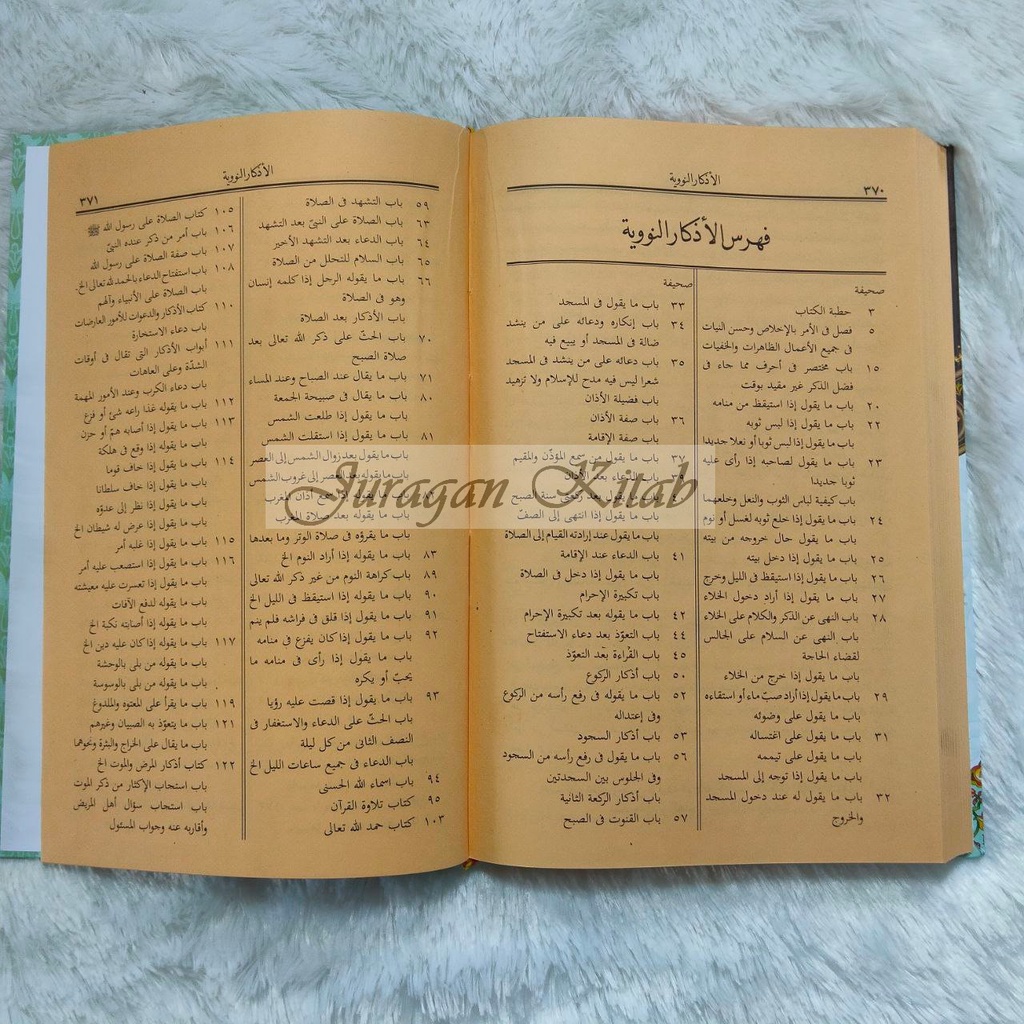 ٣٧٠
الأذكار النووية
فهرس الأذكار النووية
صحيفة
٣ خطبة الكتاب
٥ فصل فى الأمر بالإخلاص وحسن النيات
فى جميع الأعمال الظاهرات والخفيات
١٥ باب مختصر فى أحرف مما جاء فى
فضل الذكر غير مقيد بوقت
٢٠ باب ما يقول إذا استيقظ من منامه
٢٢ باب ما يقول إذا لبس ثوبه
باب ما يقول إذا لبس ثوبا أو نعلا جديدا
٢٣ باب ما يقول لصاحبه إذا رأى عليه
ثوبا جديدا
باب كيفية لباس الثوب والنعل وخلعهما
٢٤ باب ما يقول إذا خلع ثوبه لغسل أو نوم
باب ما يقول حال خروجه من بيته
٢٥ باب ما يقول إذا دخل بيته
٢٦ باب ما يقول إذا استيقظ فى الليل وخرج
٢٧ باب ما يقول إذا أراد دخول الخلاء
٢٨ باب النهى عن الذكر والكلام على الخلاء
باب النهى عن السلام على الجالس
لقضاء الحاجة
باب ما يقول إذا خرج من الخلاء
٢٩ باب ما يقول إذا أراد صبّ ماء أو استقاءه
باب ما يقول على وضوئه
٣١ باب ما يقول على اغتساله
باب ما يقول على تيممه
باب ما يقول إذا توجه إلى المسجد
٣٢ باب ما يقول له عند دخول المسجد
والخروج
صحيفة
٣٣ باب ما يقول فى المسجد
٣٤ باب إنكاره ودعائه على من ينشد
ضالة فى المسجد أو يبيع فيه
٣٥ باب دعائه على من ينشد فى المسجد
شعرا ليس فيه مدح للإسلام ولا تزهيد
باب فضيلة الأذان
٣٦ باب صفة الأذان
باب صفة الإقامة
٣٧ باب ما يقول من سمع المؤذّن والمقيم
٣٩ باب الدعاء بعد الأذان
باب ما يقول بعد ركعتى سنة الصبح
باب ما يقول إذا انتهى إلى الصفّ
باب ما يقول عند إرادته القيام إلى الصلاة
٤١ باب الدعاء عند الإقامة
باب ما يقول إذا دخل فى الصلاة
باب تكبيرة الإحرام
٤٢ باب ما يقوله بعد تكبيرة الإحرام
٤٤ باب التعوّذ بعد دعاء الاستفتاح
٤٥ باب القراءة بعد التعوّذ
٥٠ باب أذكار الركوع
٥٢ باب ما يقوله فى رفع رأسه من الركوع
وفى إعتداله
٥٣ باب أذكار السجود
٥٦ باب ما يقول فى رفع رأسه من السجود
وفى الجلوس بين السجدتين
باب أذكار الركعة الثانية
٥٧ باب القنوت فى الصبح
الأذكار النووية
٣٧١
٥٩ باب التشهد فى الصلاة
٦٣ باب الصلاة على النبىّ بعد التشهد
٦٤ باب الدعاء بعد التشهد الأخير
٦٥ باب السلام للتحلل من الصلاة
٦٦ باب ما يقوله الرجل إذا كلمه إنسان
وهو فى الصلاة
باب الأذكار بعد الصلاة
٧٠ باب الحثّ على ذكر الله تعالى بعد
صلاة الصبح
٧١ باب ما يقال عند الصباح وعند المساء
٨٠ باب ما يقال فى صبيحة الجمعة
باب ما يقول إذا طلعت الشمس
٨١ باب ما يقول إذا استقلت الشمس
باب ما يقول بعد زوال الشمس إلى العصر
باب ما يقوله بعد العصر إلى غروب الشمس
باب ما يقوله إذا سمع أذان المغرب
باب ما يقوله بعد صلاة المغرب
باب ما يقرؤه فى صلاة الوتر وما بعدها
٨٣ باب ما يقوله إذا أراد النوم الخ
٨٩ باب كراهة النوم من غير ذكر الله تعالى
٩٠ باب ما يقوله إذا استيقظ فى الليل الخ
٩١ باب ما يقول إذا قلق فى فراشه فلم ينم
٩٢ باب ما يقول إذا كان يفزع فى منامه
باب ما يقول إذا رأى فى منامه ما
يحبّ أو يكره
٩٣ باب ما يقول إذا قصت عليه رؤيا
باب الحثّ على الدعاء والاستغفار فى
النصف الثانى من كل ليلة
باب الدعاء فى جميع ساعات الليل الخ
٩٤ باب اسماء الله الحسنى
٩٥ كتاب تلاوة القرآن
١٠٣ كتاب حمد الله تعالى
١٠٥ كتاب الصلاة على رسول الله ﷺ
١٠٦ باب أمر من ذكر عنده النبىّ
١٠٧ باب صفة الصلاة على رسول الله
١٠٨ باب استفتاح الدعاء بالحمد لله تعالى الخ
باب الصلاة على الأنبياء وآلهم
١١٠ كتاب الأذكار والدعوات للأمور العارضات
باب دعاء الاستخارة
١١١ أبواب الأذكار التى تقال فى أوقات
الشدّة وعلى العاهات
باب دعاء الكرب وعند الأمور المهمة
١١٢ باب ما يقوله إذا راعه شئ أو فزع
١١٣ باب ما يقول إذا أصابه همّ أو حزن
باب ما يقوله إذا وقع فى هلكة
١١٤ باب ما يقول إذا خاف قوما
باب ما يقول إذا خاف سلطانا
باب ما يقول إذا نظر إلى عدوّه
باب ما يقول إذا عرض له شيطان الخ
١١٥ باب ما يقول إذا غلبه أمر
١١٦ باب ما يقول إذا استصعب عليه أمر
باب ما يقول إذا تعسرت عليه معيشته
باب ما يقوله لدفع الآفات
باب ما يقوله إذا أصابته نكبة الخ
١١٧ باب ما يقوله إذا كان عليه دين الخ
باب ما يقوله من بلى بالوحشة
باب ما يقوله من بلى بالوسوسة
١١٩ باب ما يقرأ على المعتوه والملدوغ
١٢١ باب ما يتعوّذ به الصبيان وغيرهم
باب ما يقال على الخراج والبثرة ونحوهما
١٢٢ كتاب أذكار المرض والموت الخ
باب استحباب الإكثار من ذكر الموت
باب استحباب سؤال أهل المريض
وأقاربه عنه وجواب المسئول
Juragan Kitab